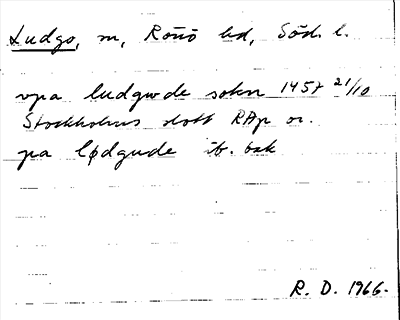 Ludgo, sn, Rönö hd, Söd. l.
vpa ludgwde sokn 1457 21/10
Stockholms slott RAp or.
pa lødgude ib. bak
R. D. 1966.